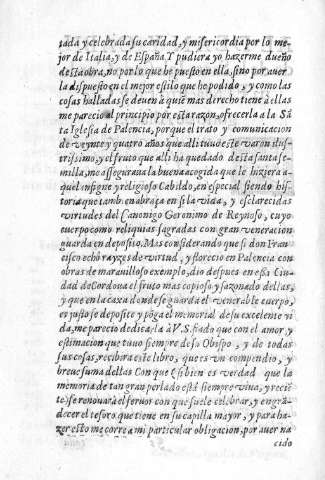 tada y celebrada su caridad, y misericordia por lo me-
jor de Italia, y de España. Y pudiera yo hazerme dueño
desta obra, no por lo que he puesto en ella, sino por auer
la dispuesto en el mejor estilo que he podido, y como las
cosas halladas se deuen à quiē mas derecho tiene à ellas
me parecio al principio por esta razon, ofrecerla a la Sā
ta Iglesia de Palencia, porque el trato y comunicacion
de veynte y quatro años que alli tuuo este varon ilus-
trissimo, y el fruto que alli ha quedado desta santa se-
milla, no assegurauà la buena acogida que le hiziera a-
quel insigne y religioso Cabildo, en especial siendo his-
toria que tamb. en abraça en si la vida, y esclarecidas
virtudes del Canonigo Geronimo de Reynoso, cuyo
cuerpo como reliquias sagradas con gran veneracion
guarda en deposito. Mas considerando que si don Fran-
cisco echò rayzes de virtud, y florecio en Palencia con
obras de marauilloso exemplo, dio despues en essa Ciu-
dad de Cordoua el fruto mas copioso y sazonado dellas,
y que en la caxa donde se guarda el venerable cuerpo,
es justo se deposite y pōga el memorial de su excelente vi
da, me parecio dedicarla à V.S. fiado que con el amor, y
estimacion que tuuo siempre de su Obispo, y de todas
sus cosas, recibirà este libro, que es vn compendio, y
breue suma dellas. Con que si bien es verdad que la
memoria de tan gran perlado està siempre viua, y reciē
te, se renouarà el feruor con que suele celebrar, y engrā-
decer el tesoro que tiene en su capilla mayor, y para ha-
zer esto me corre a mi particular obligacion, por auer na
cido